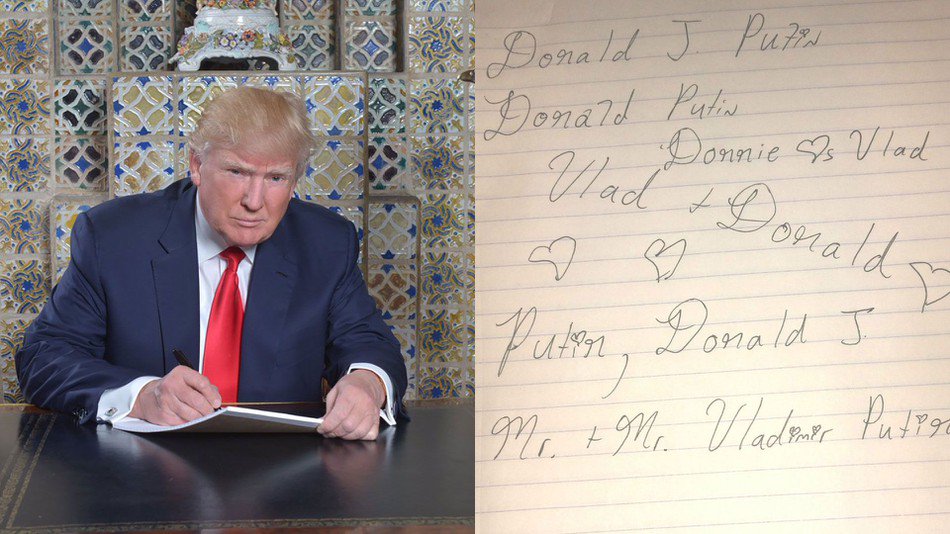 Donald J. Putin
Donald Putin
Donnie ♡s Vlad
Vlad + Donald
Putin, Donald J.
Mr. + Mr. Vladimir Putin